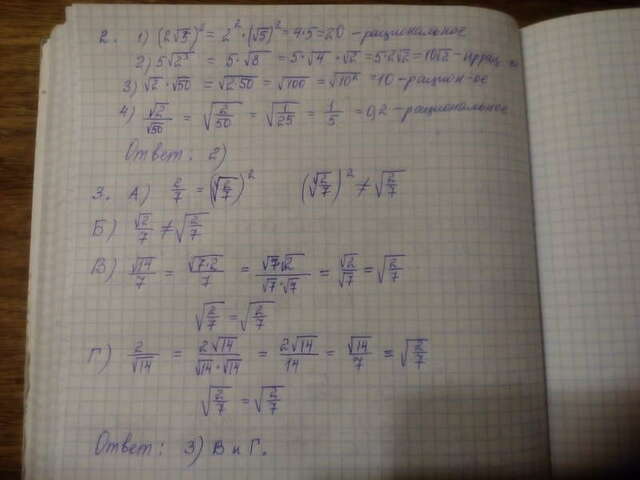 2. 1) (2√5)² = 2² · (√5)² = 4·5 = 20 - рациональное
2) 5√2³ = 5·√8 = 5·√4 · √2 = 5·2√2 = 10√2 - иррац.
3) √2 · √50 = √2·50 = √100 = √10² = 10 - рацион-ое
4) √2/√50 = √2/50 = √1/25 = 1/5 = 0,2 - рациональное
Ответ: 2)
3. А) 2/7 = (√2/7)² (√2/7)² ≠ √2/7
Б) √2/7 ≠ √2/7
В) √14/7 = √7·2/7 = √7·√2/√7·√7 = √2/√7 = √2/7
√2/7 = √2/7
Г) 2/√14 = 2√14/√14·√14 = 2√14/14 = √14/7 = √2/7
√2/7 = √2/7
Ответ: 3) В и Г.